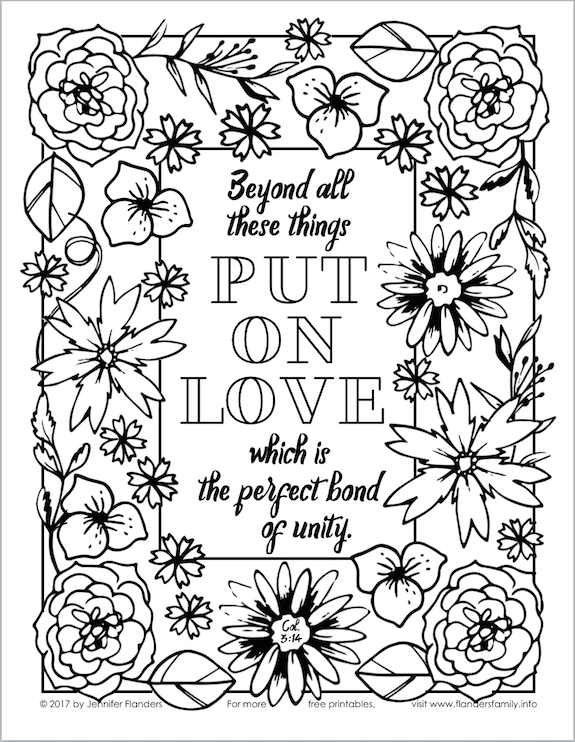 Beyond all
these things
PUT
ON
LOVE
which is
the perfect bond
of unity.
Col.
3:14
© 2017 by Jennifer Flanders For more free printables, visit www.flandersfamily.info